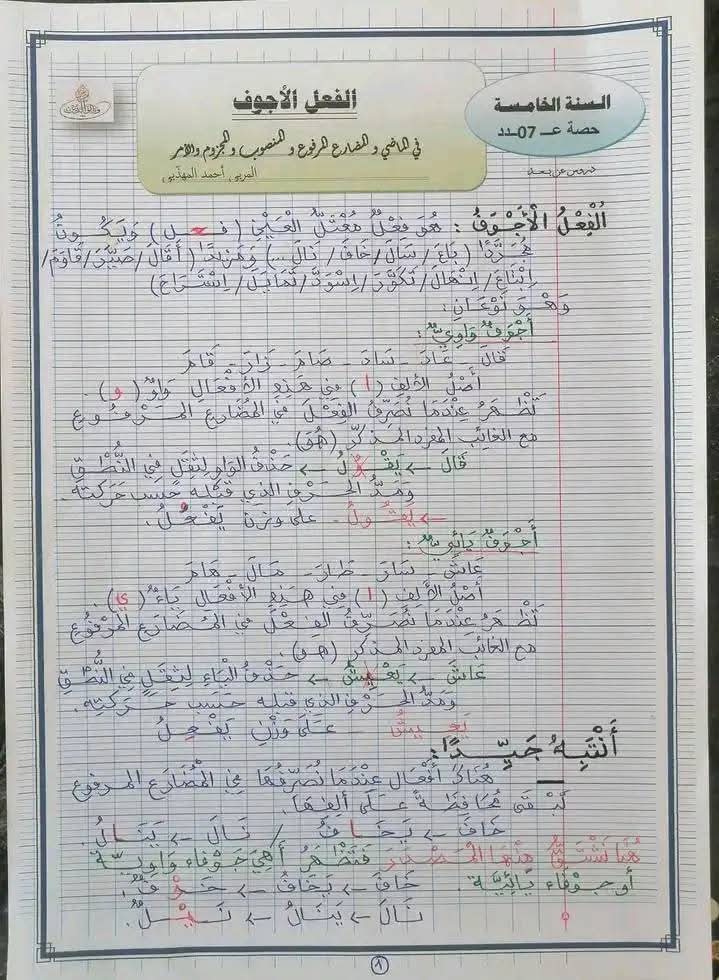 الفعل الأجوف
في الماضي و المضارع المرفوع و المنصوب و المجزوم والأمر
المربي أحمد المهذبي
السنة الخامسة
حصة عــ 07ــدد
دروس عن بعد
الْفِعْلُ الْأَجْوَفُ : هُوَ فِعْلٌ مُعْتَلُّ الْعَيْنِ ( فـعـل ) وَيَكُونُ
مُجَرَّدًا ( بَاعَ / سَالَ / خَافَ / نَالَ ...) وَمَزِيدًا ( أَقَالَ / صَيَّرَ / قَاوَمَ /
اِبْتَاعَ / اِنْهَالَ / تَكَوَّرَ / اِسْوَدَّ / تَمَايَلَ / اِسْتَرَاحَ )
وَهُوَ نَوْعَانِ :
أَجْوَفٌ وَاوِيٌّ :
قَالَ - عَادَ - سَادَ - صَامَ - زَارَ - قَامَ
أَصْلُ الأَلِفِ ( ا ) فِي هَذِهِ الأَفْعَالِ وَاوٌ ( و ) .
تَظْهَرُ عِنْدَمَا نُصَرِّفُ الفِعْلَ فِي المُضَارِعِ المَرْفُوعِ
مع الغائب المفرد المذكّر (هُوَ).
قَالَ ← يَقْوُلُ ← حَذْفُ الوَاوِ لِثِقَلٍ فِي النُّطْقِ
وَمَدُّ الحَرْفِ الذي قَبْلَهُ حَسَبَ حَرَكَتِهِ.
← يَقُولُ - على وزن يَفْعُلُ .
أَجْوَفٌ يَائِيٌّ :
عَاشَ - سَارَ - طَارَ - مَالَ - هَامَ
أَصْلُ الأَلِفِ ( ا ) فِي هَذِهِ الأَفْعَالِ يَاءٌ ( ي ) .
تَظْهَرُ عِنْدَمَا نُصَرِّفُ الفِعْلَ فِي المُضَارِعِ المَرْفُوعِ
مع الغائب المفرد المذكر (هو) .
عَاشَ ← يَعْيِشُ ← حَذْفُ الْيَاءِ لِثِقَلٍ فِي النُّطْقِ
وَمَدُّ الحَرْفِ الذي قبله حَسَبَ حَرَكَتِهِ.
يَعِيشُ عَلَى وَزْنِ يَفْعِلُ
أَنْتَبِهُ جَيِّدًا :
هُنَاكَ أَفْعَال عِنْدَمَا نُصَرِّفُهَا فِي المُضَارِعِ المرفوع
تَبْقَى مُحَافِظَةً عَلَى أَلِفِهَا.
خَافَ ← يَخَافُ / نَالَ ← يَنَالُ .
هُنَا نَشْتَقُّ مِنْهَا الْمَصْدَرَ فَتَظْهَرُ أَهِيَ جَوْفَاء وَاوِيَّة
أو جوفاء يَائِيَّة . خَافَ ← يَخَافُ ← خَوْفٌ .
نَالَ ← يَنَالُ ← نَيْلٌ .
1